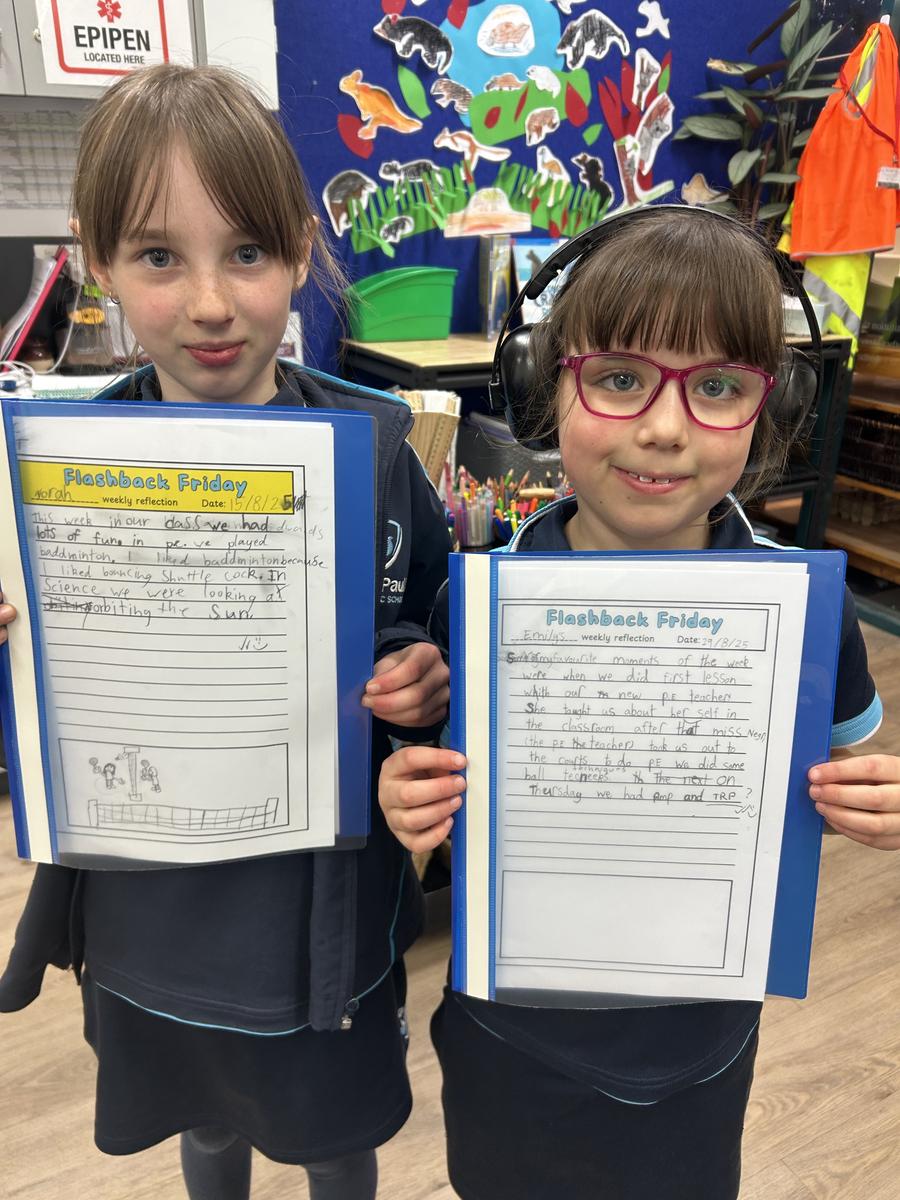 EPIPEN
LOCATED HERE
Flashback Friday
Norah weekly reflection Date: 15/8/25
This week in our class we had
lots of fun. in p.e. we played
baddminton. I liked baddminton because
I liked bouncing Shuttle cock. In
Science we were looking at
orbiting the sun.
Paul
C SCHO
Flashback Friday
Emilys weekly reflection Date: 29/8/25
my favourite moments of the week
were when we did first lesson
whith our new P.E teacher
She taught us about her self in
the classroom after that miss
(the P.E the teacher) took us out to
the courts to do P.E we did some
techniques
ball tecneeks the next on
Thursday we had pmp and TRP?